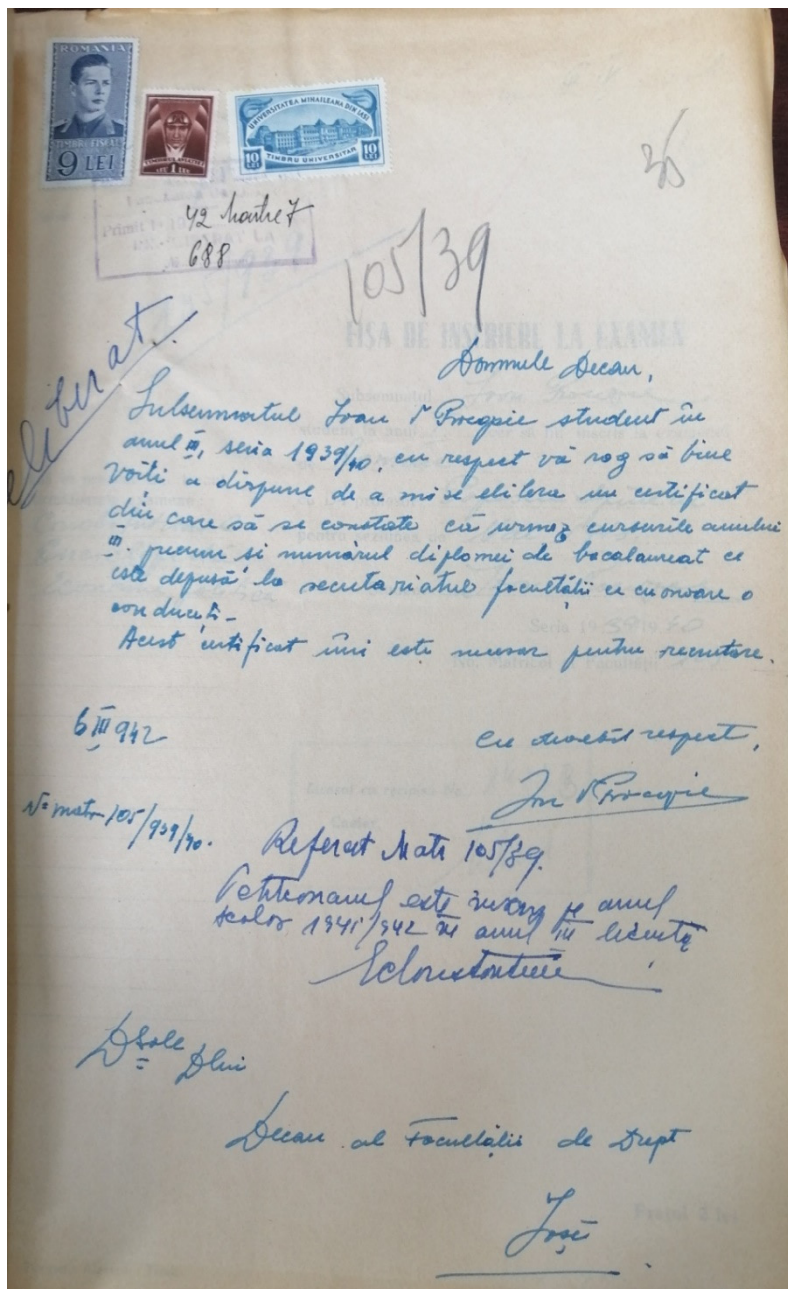 ROMANIA
TIMBRU FISCAL
9 LEI
TIMBRUL AVIATIEI
1 LEU
UNIVERSITATEA MIHAILEANA DIN IASI
10 LEI
TIMBRU UNIVERSITAR
10 LEI
35
42 Martie 7
688
105/39
eliberat.
FIȘA DE INSCRIERE LA EXAMEN
Domnule Decan,
Subsemnatul Ioan V Procopie student în
anul III, seria 1939/40, cu respect vă rog să bine
voiți a dispune de a mi se elibera un certificat
din care să se constate că urmez cursurile anului
III. precum si numărul diplomei de bacalaureat ce
este depusă la secretariatul facultății ce cu onoare o
conduceți-
Acest certificat îmi este necesar pentru recrutare.
6 III 942
Cu deosebit respect,
Ion V Procopie
No matr 105/939/40.
Referat Matr 105/39.
Petitionarul este inscris pe anul
scolar 1941/942 in anul III licență
D sale Dlui
Decan al Facultății de Drept
Iași
Prețul 2 lei